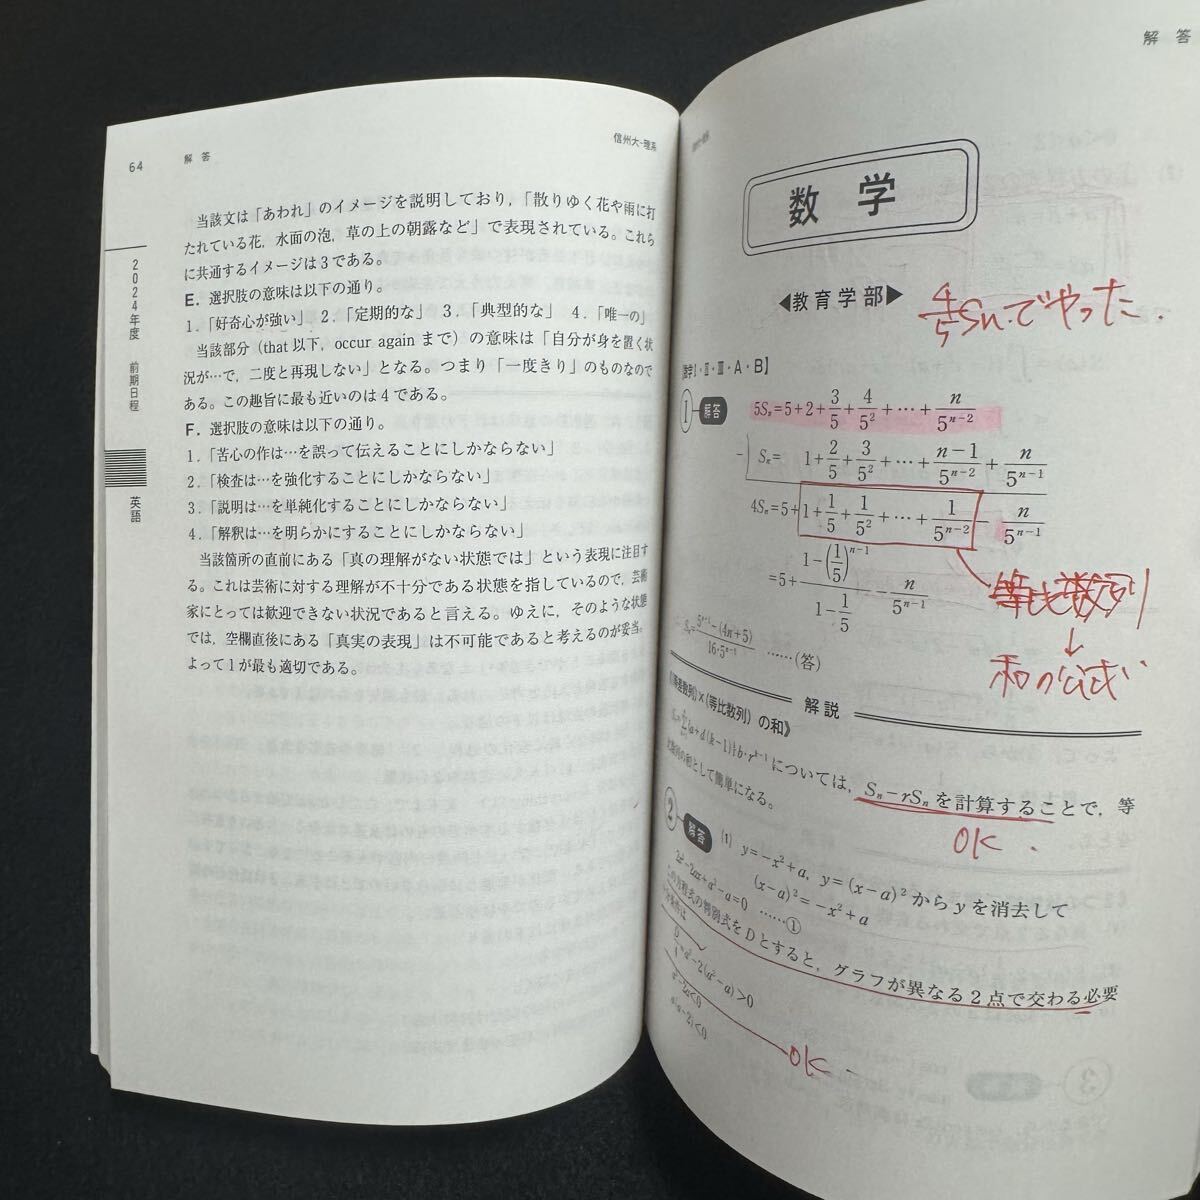 64
解答
信州大-理系
2024年度 前期日程
英語
当該文は「あわれ」のイメージを説明しており，「散りゆく花や雨に打
たれている花，水面の泡，草の上の朝露など」で表現されている。これら
に共通するイメージは3である。
E．選択肢の意味は以下の通り。
1．「好奇心が強い」 2．「定期的な」 3．「典型的な」 4．「唯一の」
当該部分（that 以下，occur again まで）の意味は「自分が身を置く状
況が…で，二度と再現しない」となる。つまり「一度きり」のものなので
ある。この趣旨に最も近いのは4である。
F．選択肢の意味は以下の通り。
1．「苦心の作は…を誤って伝えることにしかならない」
2．「検査は…を強化することにしかならない」
3．「説明は…を単純化することにしかならない」
4．「解釈は…を明らかにすることにしかならない」
当該箇所の直前にある「真の理解がない状態では」という表現に注目す
る。これは芸術に対する理解が不十分である状態を指しているので，芸術
家にとっては歓迎できない状況であると言える。ゆえに，そのような状態
では，空欄直後にある「真実の表現」は不可能であると考えるのが妥当。
よって1が最も適切である。
解答
数学
◀教育学部▶
4/5 Sn でやった．
【数学Ⅰ・Ⅱ・Ⅲ・A・B】
① 解答
5Sₙ=5+2+3/5+4/5²+…+n/5ⁿ⁻²
− Sₙ= 1+2/5+3/5²+…+(n−1)/5ⁿ⁻²+n/5ⁿ⁻¹
4Sₙ=5+1+1/5+1/5²+…+1/5ⁿ⁻²−n/5ⁿ⁻¹
=5+(1−(1/5)ⁿ⁻¹)/(1−1/5)−n/5ⁿ⁻¹
等比数列
↓
和の公式
……(答)
解説
《(等差数列)×(等比数列) の和》
については，Sₙ−rSₙを計算することで，等
比数列の和として簡単になる。
OK．
② 解答
(1) y=−x²+a，y=(x−a)²からyを消去して
(x−a)²=−x²+a
2x²−2ax+a²−a=0 ……①
この方程式の判別式をDとすると，グラフが異なる2点で交わる必要
十分条件は
D/4=a²−2(a²−a)>0
a²−2a<0
a(a−2)<0
OK